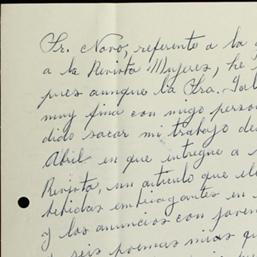 Sr. Novo, referente a la
a la Revista Mujeres, he
pues aunque la Sra.
muy fina con migo
dido sacar mi trabajo
Abril en que entregue a
Revista, un articulo que
bebidas embriagantes en
y los anuncios con
seis poemas mios